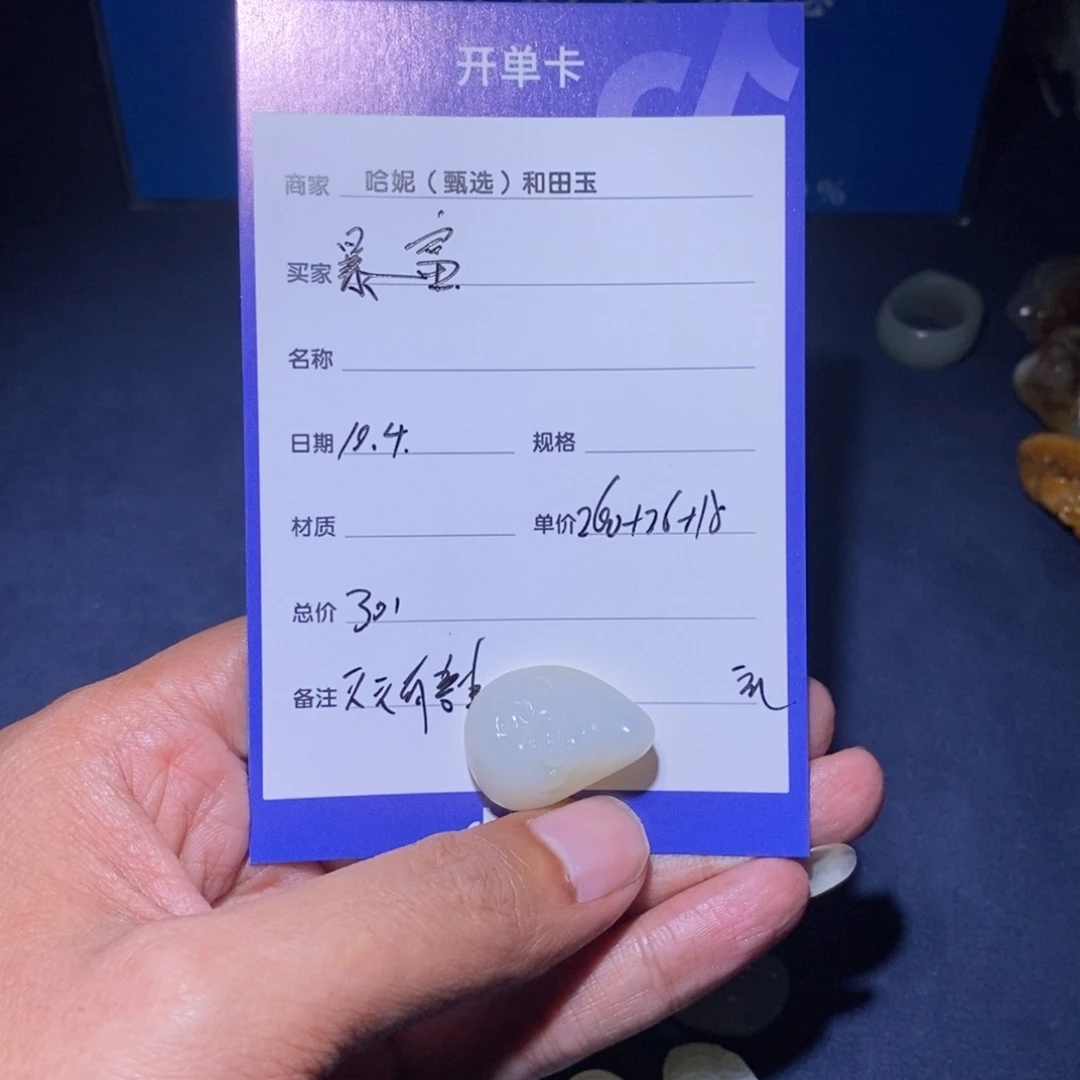 开单卡
商家 哈妮（甄选）和田玉
买家 暴富
名称
日期 10.4. 规格
材质 单价 260+26+18
总价 301
备注